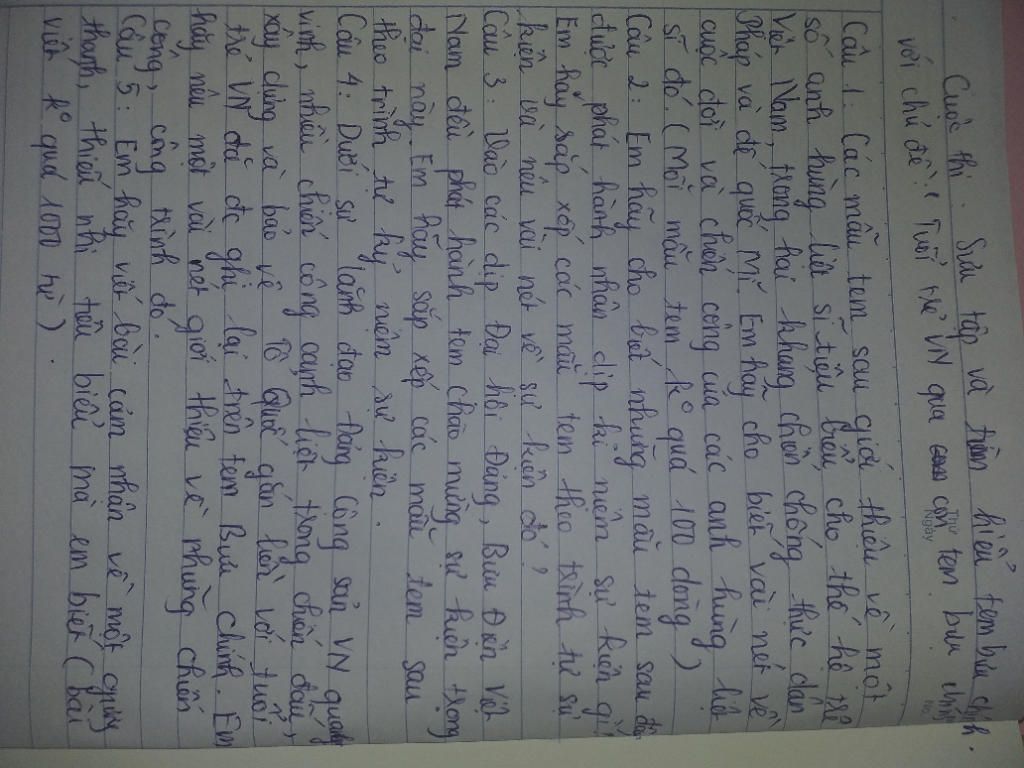 Cuộc thi. Sưu tập và tìm hiểu tem bưu chính.
với chủ đề: "Tuổi trẻ VN qua con tem bưu chính
Thứ
Ngày
No.
Câu 1: Các mẫu tem sau giới thiệu về một
số anh hùng liệt sĩ tiêu biểu, cho thế hệ trẻ
Việt Nam, trong hai khung chiến chống thực dân
Pháp và đế quốc Mĩ. Em hãy cho biết vài nét về
cuộc đời và chiến công của các anh hùng liệt
sĩ đó. (Mỗi mẫu tem k° quá 100 dòng)
Câu 2: Em hãy cho biết những mẫu tem sau đây
được phát hành nhân dịp kỉ niệm sự kiện gì?
Em hãy sắp xếp các mẫu tem theo trình tự sự
kiện và nêu vài nét về sự kiện đó?
Câu 3: Vào các dịp Đại hội Đảng, Bưu Điện Việt
Nam đều phát hành tem chào mừng sự kiện trọng
đại này. Em hãy sắp xếp các mẫu tem sau
theo trình tự kỷ niệm sự kiện.
Câu 4: Dưới sự lãnh đạo Đảng Cộng sản VN quang
vinh, nhiều chiến công oanh liệt trong chiến đấu,
xây dựng và bảo vệ Tổ Quốc gắn liền với tuổi
trẻ VN đã đc ghi lại trên tem Bưu chính. Em
hãy nêu một vài nét giới thiệu về những chiến
công, công trình đó.
Câu 5: Em hãy viết bài cảm nhận về một gương
thanh, thiếu nhi tiêu biểu mà em biết (bài
viết k° quá 1000 từ).